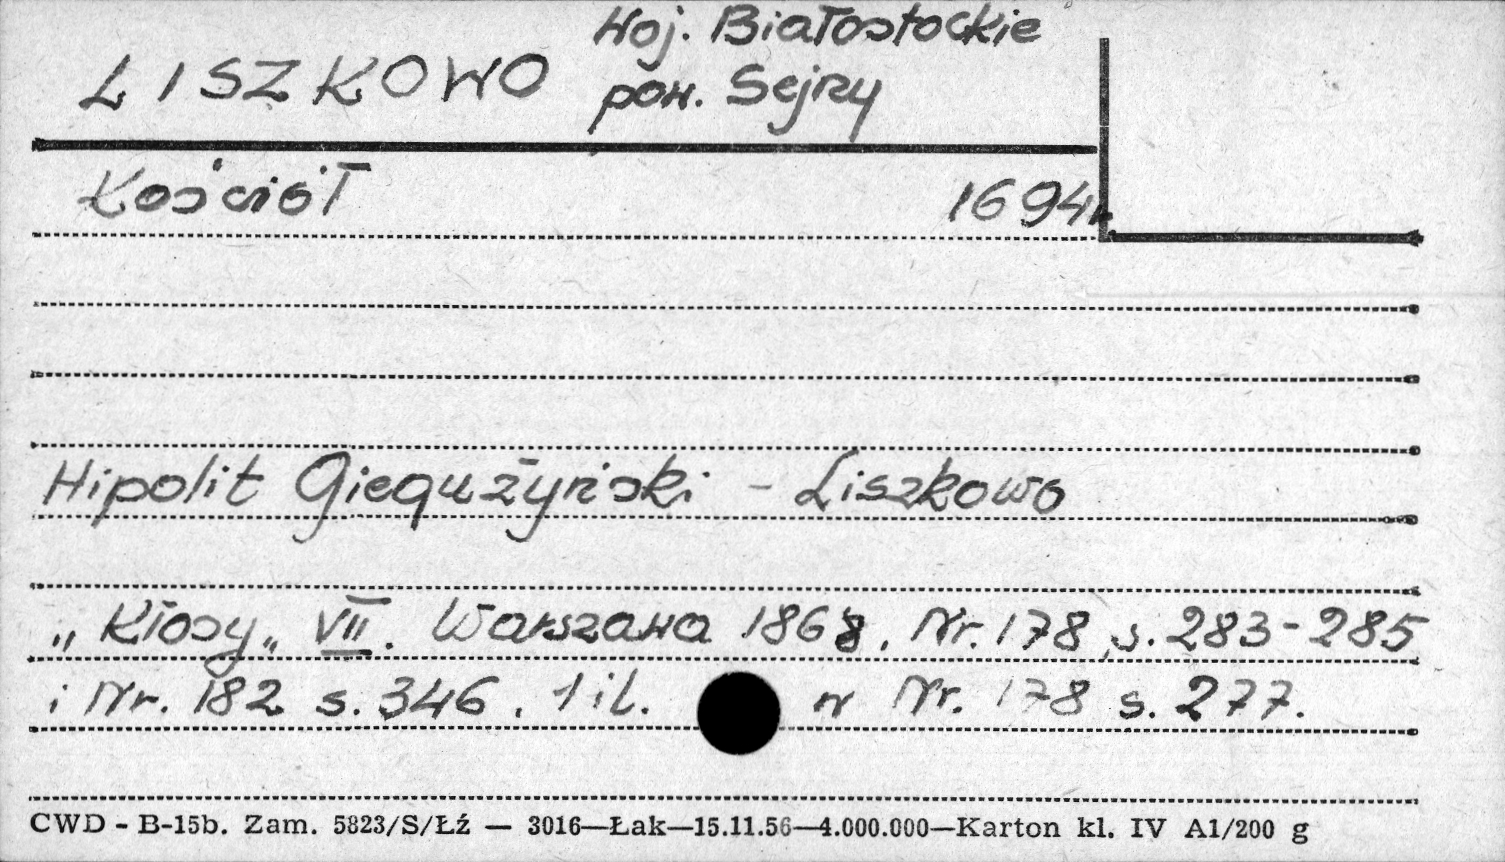 Woj. Białostockie
LISZKOWO pow. Sejny
Kościół 1694r.
Hipolit Giegużyński - Liszkowo
„Kłosy„ VII. Warszawa 1868, Nr. 178, s. 283-285
i Nr. 182 s. 346. 1 il. w Nr. 178 s. 277.
CWD - B-15b. Zam. 5823/S/Łź — 3016—Łak—15.11.56—4.000.000—Karton kl. IV A1/200 g